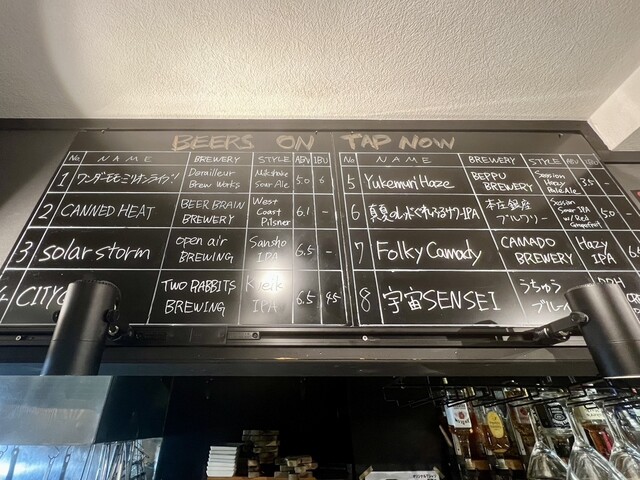 BEERS ON TAP NOW
No. NAME BREWERY STYLE ABV IBU
1 ワンダーモモミリオンライブ! Derailleur Brew Works Milkshake Sour Ale 5.0 6
2 CANNED HEAT BEER BRAIN BREWERY West Coast Pilsner 6.1 -
3 solar storm open air BREWING Sansho IPA 6.5 -
CITY TWO RABBITS BREWING IPA 6.5 45
No. NAME BREWERY STYLE ABV IBU
5 Yukemuri Haze BEPPU BREWERY Session Hazy Pale Ale 3.5 -
6 本庄銀座ブルワリー Session Sour IPA w/ Red Grapefruit 5.0 -
7 Folky Camady CAMADO BREWERY Hazy IPA
8 宇宙SENSEI うちゅう